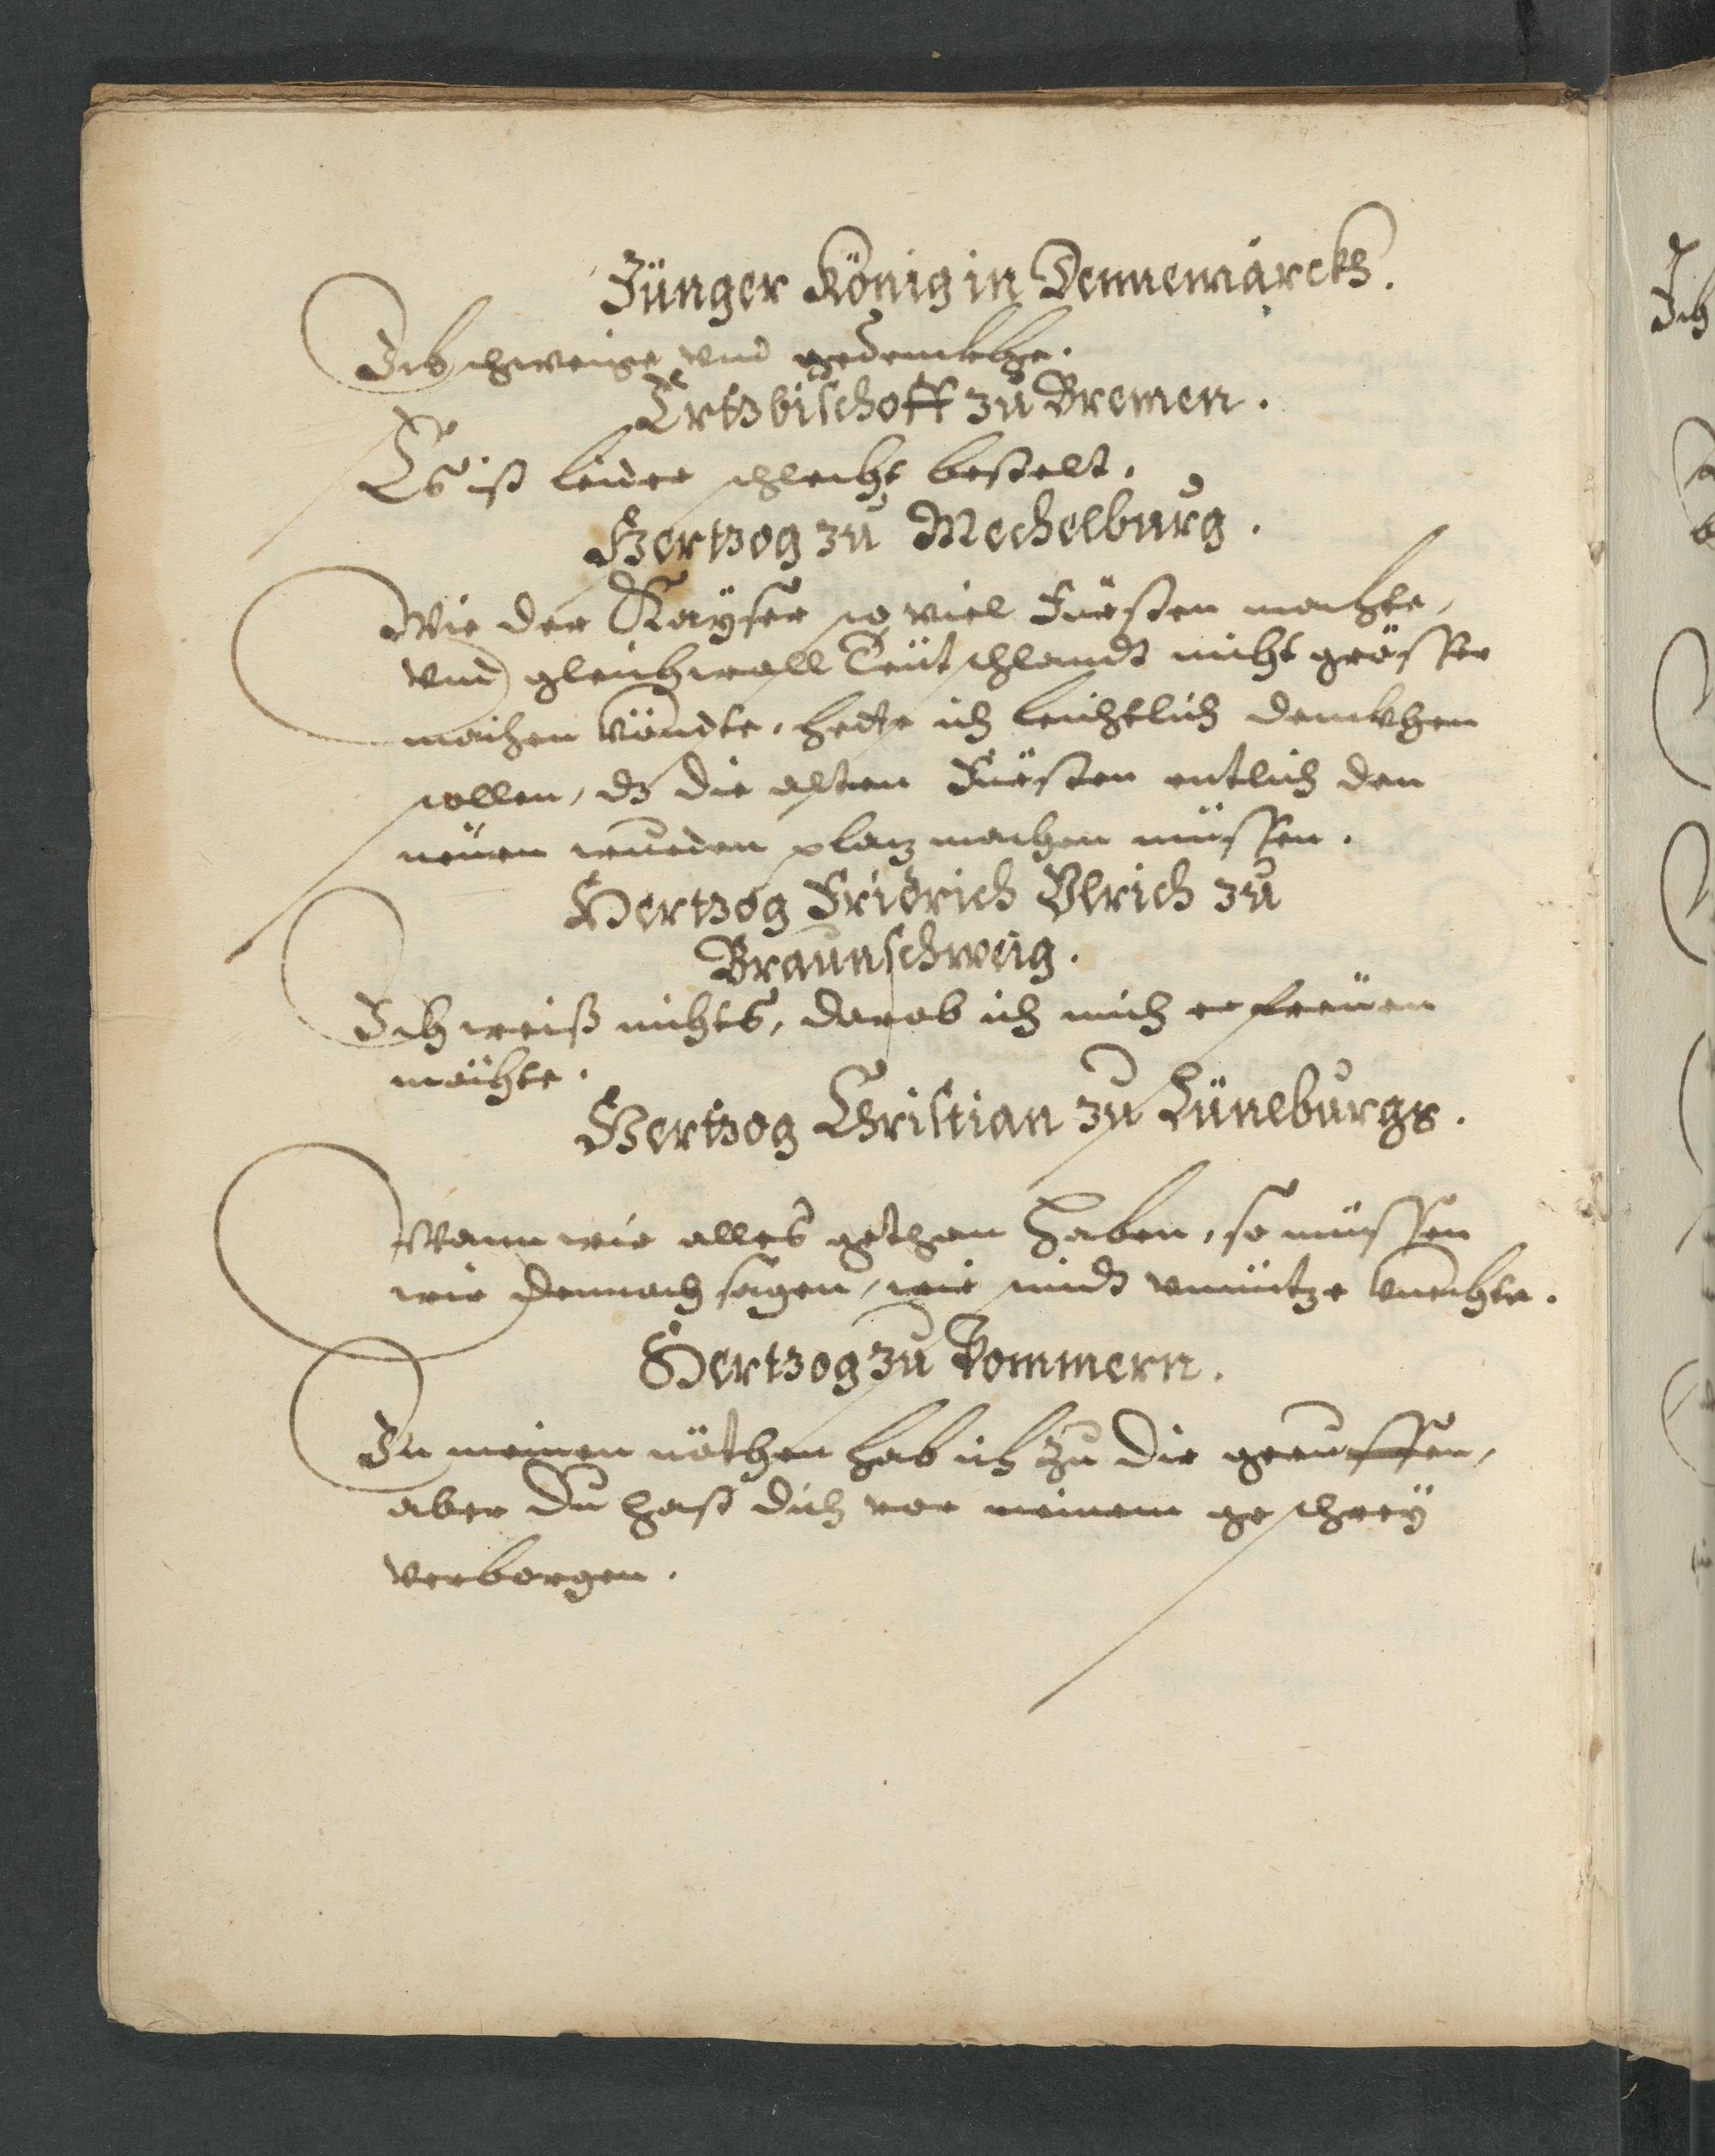 Jünger König in Dennemarckh.
Ich schweige vnd gedenckhe.
Ertzbischoff zu Bremen.
Es ist leider schlecht bestelt.
Hertzog zu Mechelburg.
Wie der Kaÿser so viel Fürsten machte,
vnd gleichwoll Teütschlandt nicht grösser
machen köndte, hette ich leichtlich denckhen
sollen, dz die alten Fürsten entlich den
neüen wurden platz machen müssen.
Hertzog Fridrich Vlrich zu
Braunschweig.
Ich weiß nichts, darob ich mich erfreüen
möchte.
Hertzog Christian zu Lüneburgk.
Wann wir alles gethan haben, so müssen
wir dennoch sagen, wir sindt vnnütze knechte.
Hertzog zu Pommern.
In meinen nöthen hab ich zu dir geruffen,
aber du hast dich vor meinem geschreÿ
verborgen.
Ich